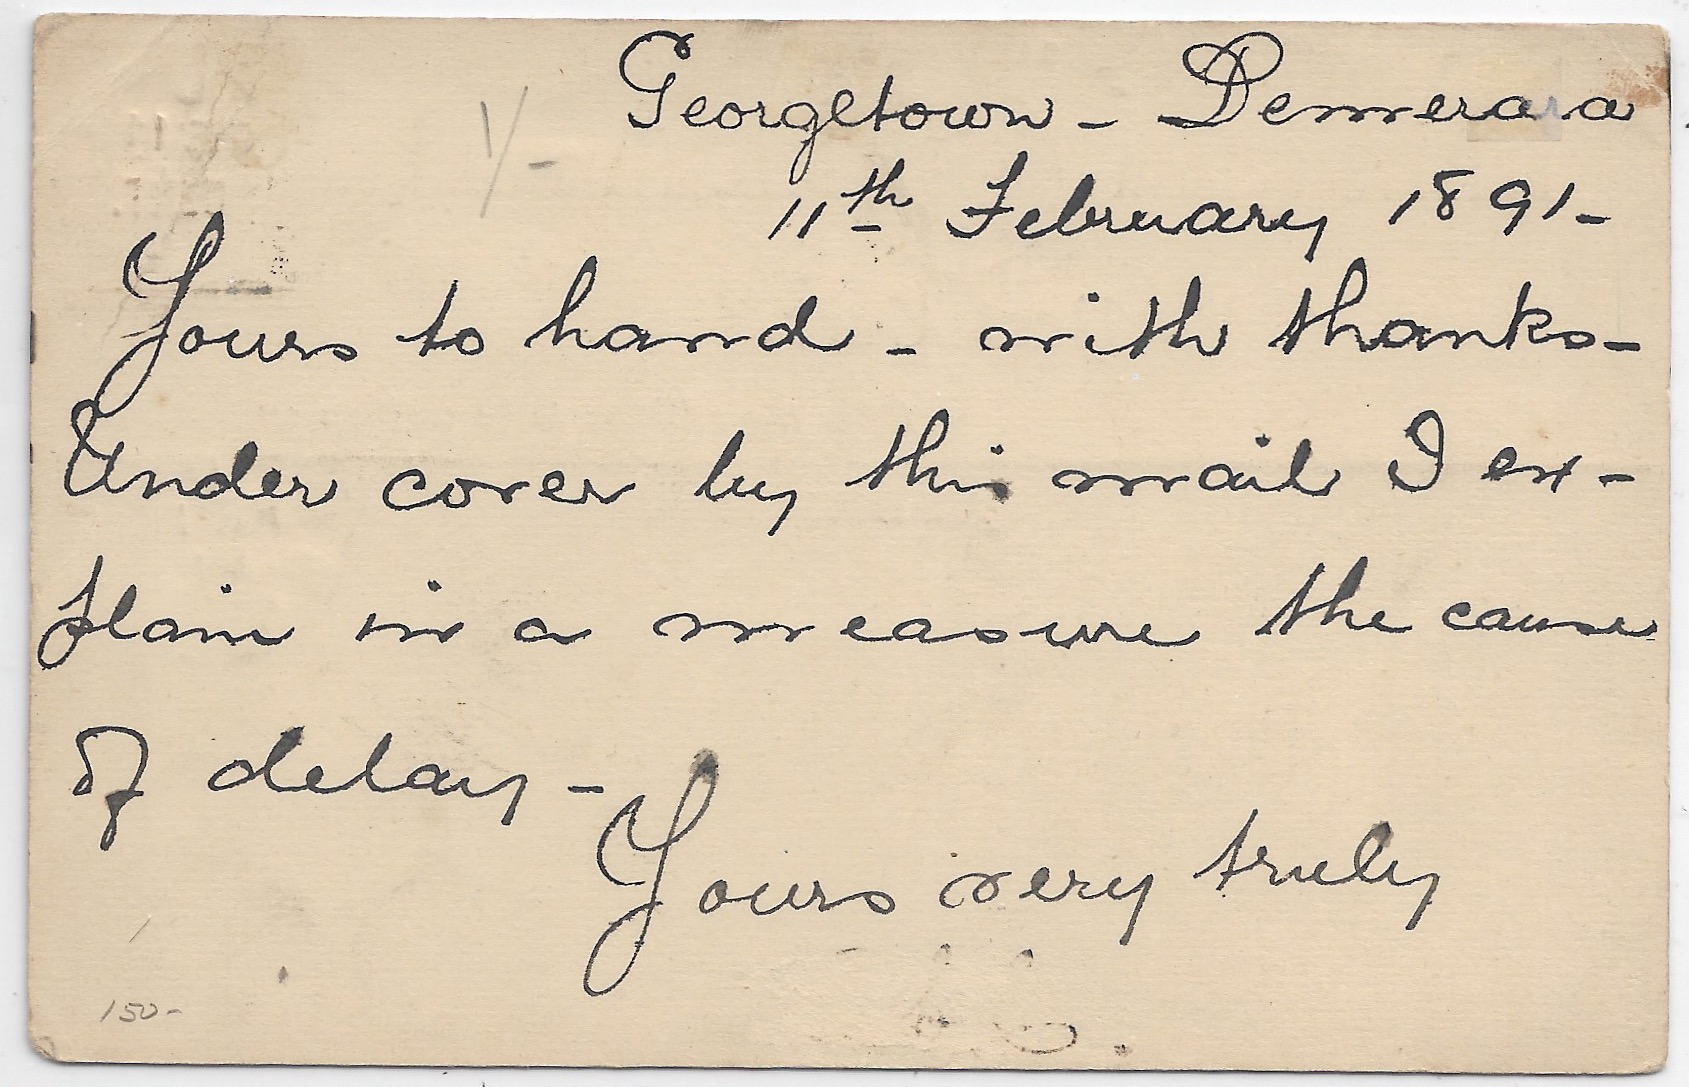 Georgetown - Demerara
1/-
11th February 1891-
Yours to hand - with thanks-
Under cover by this mail I ex-
plain in a measure the cause
of delay -
Yours very truly
150-